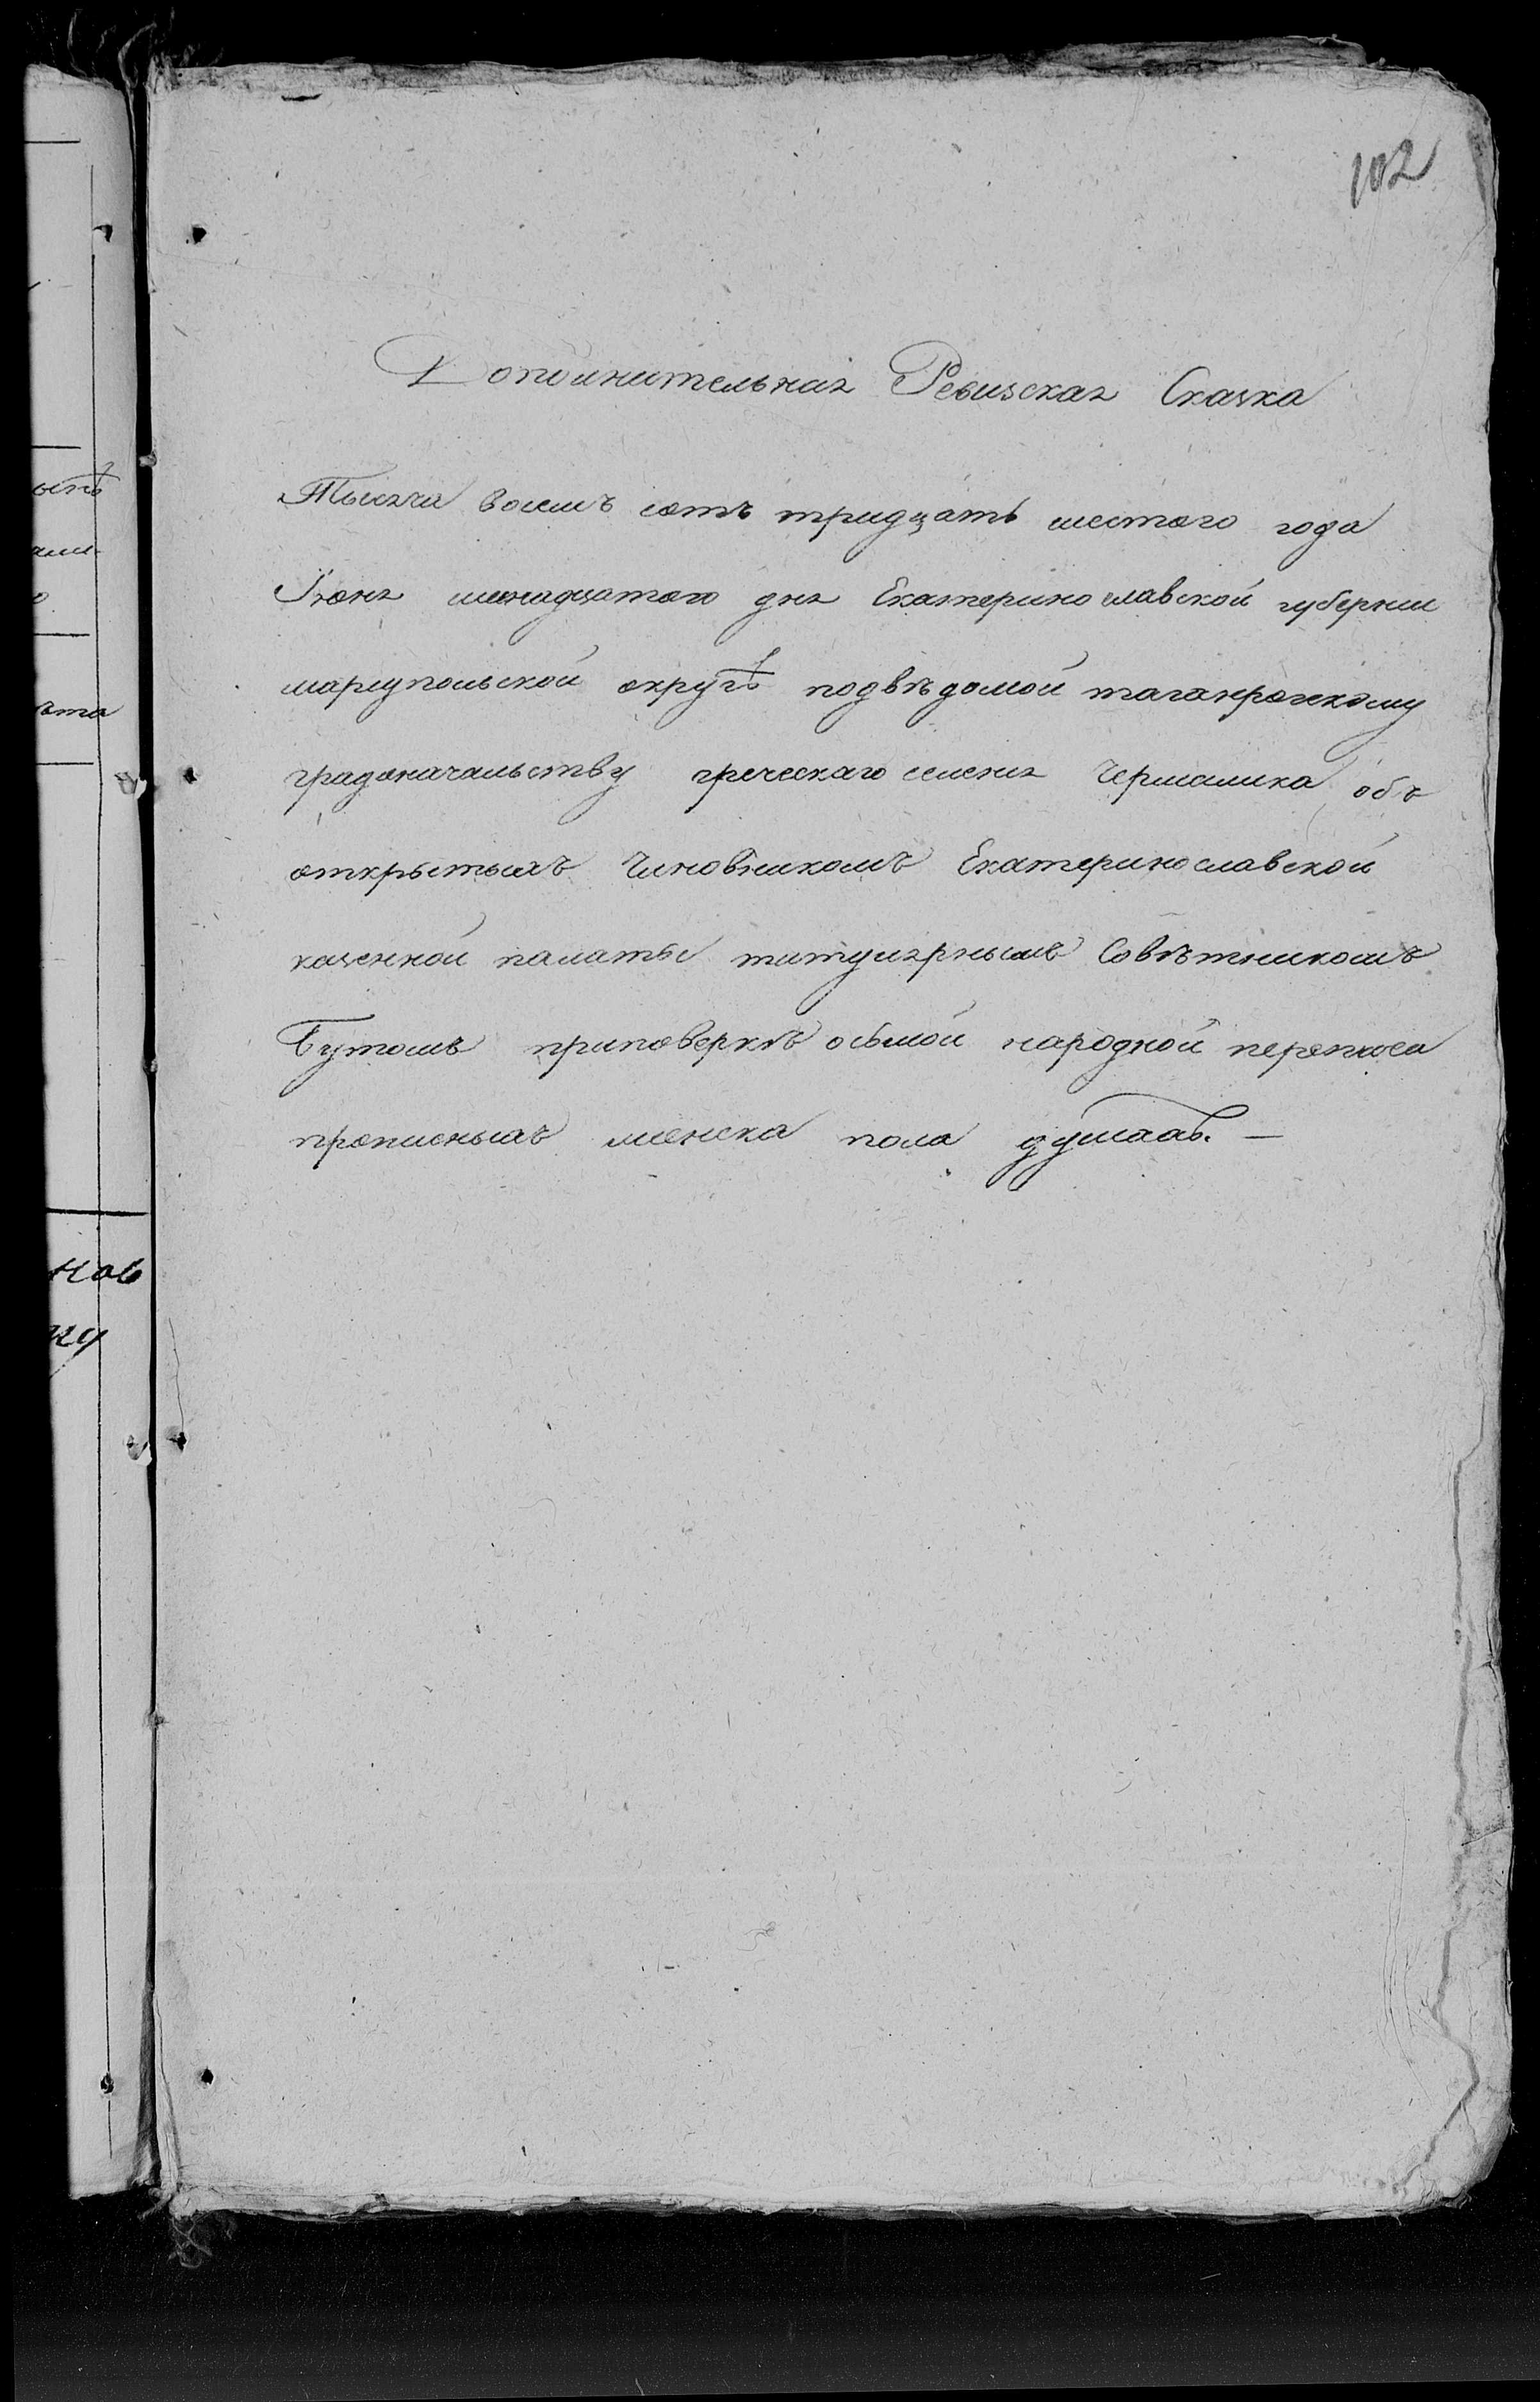 102
Дополнительная Ревизская Сказка
Тысяча восемъ сотъ тридцать шестого года
Іюня дня Екатеринославской губернии
мариупольской округѣ подвѣдомой таганрогскому
градоначальству греческаго селеня Чермалика объ
открытыхъ Чиновникомъ Екатеринославской
казенной палаты титулярнымъ Совѣтникомъ
Бутомъ приповеркѣ осьмой народной переписи
прописныхъ женска пола душахъ. —
ыть
ами-
о
ѣта
нов